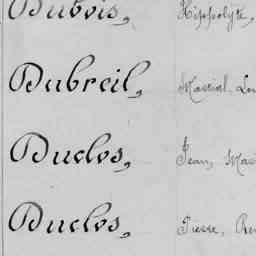 Dubois, Hippolyte,
Dubreil, Martial, Lou
Duclos, Jean, Mar
Duclos, Pierre, Ren